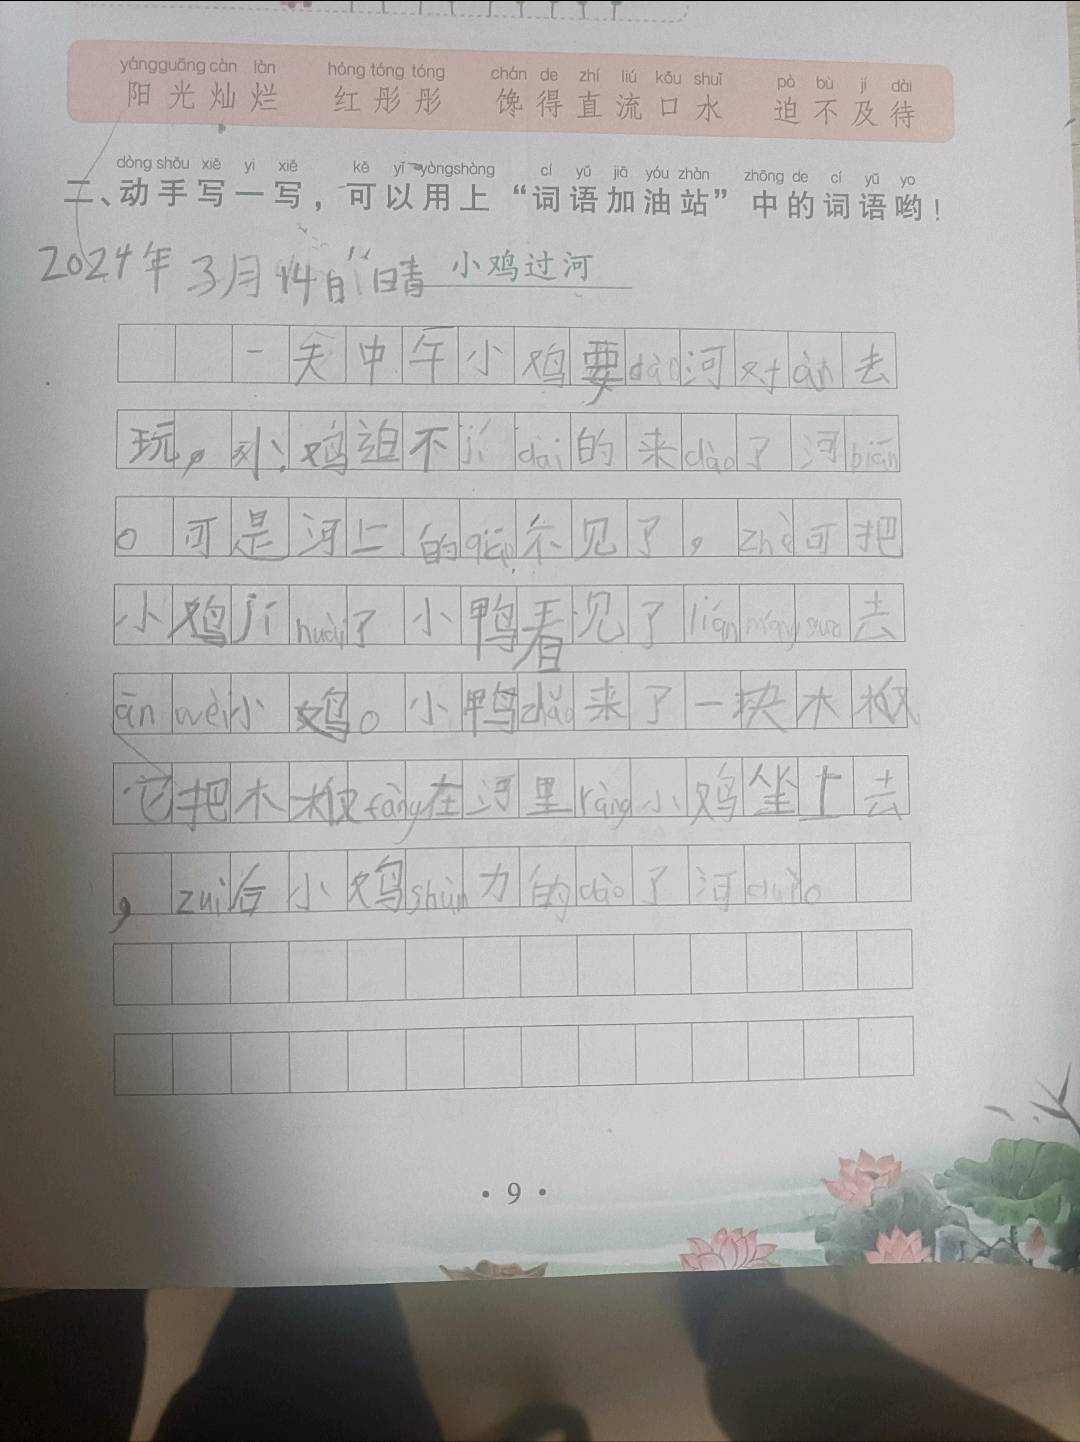 yángguāng càn làn hóng tóng tóng chán de zhí liú kǒu shuǐ pò bù jí dài
阳光灿烂 红彤彤 馋得直流口水 迫不及待
dòng shǒu xiě yi xiě kě yǐ yòngshàng cí yǔ jiā yóu zhàn zhōng de cí yǔ yo
二、动手写一写，可以用上“词语加油站”中的词语哟！
2024年3月14日 晴 小鸡过河
一天中午小鸡要dào河对àn去
玩，小鸡迫不jídài的来dào了河biān
。可是河上的qiáo不见了，zhè可把
小鸡jíhuài了小鸭看见了liánmángguò去
ānwèi小鸡。小鸭zhǎo来了一块木板
它把木板fàng在河里ràng小鸡坐上去
，zuì后小鸡shùn力的dào了河duì。
·9·